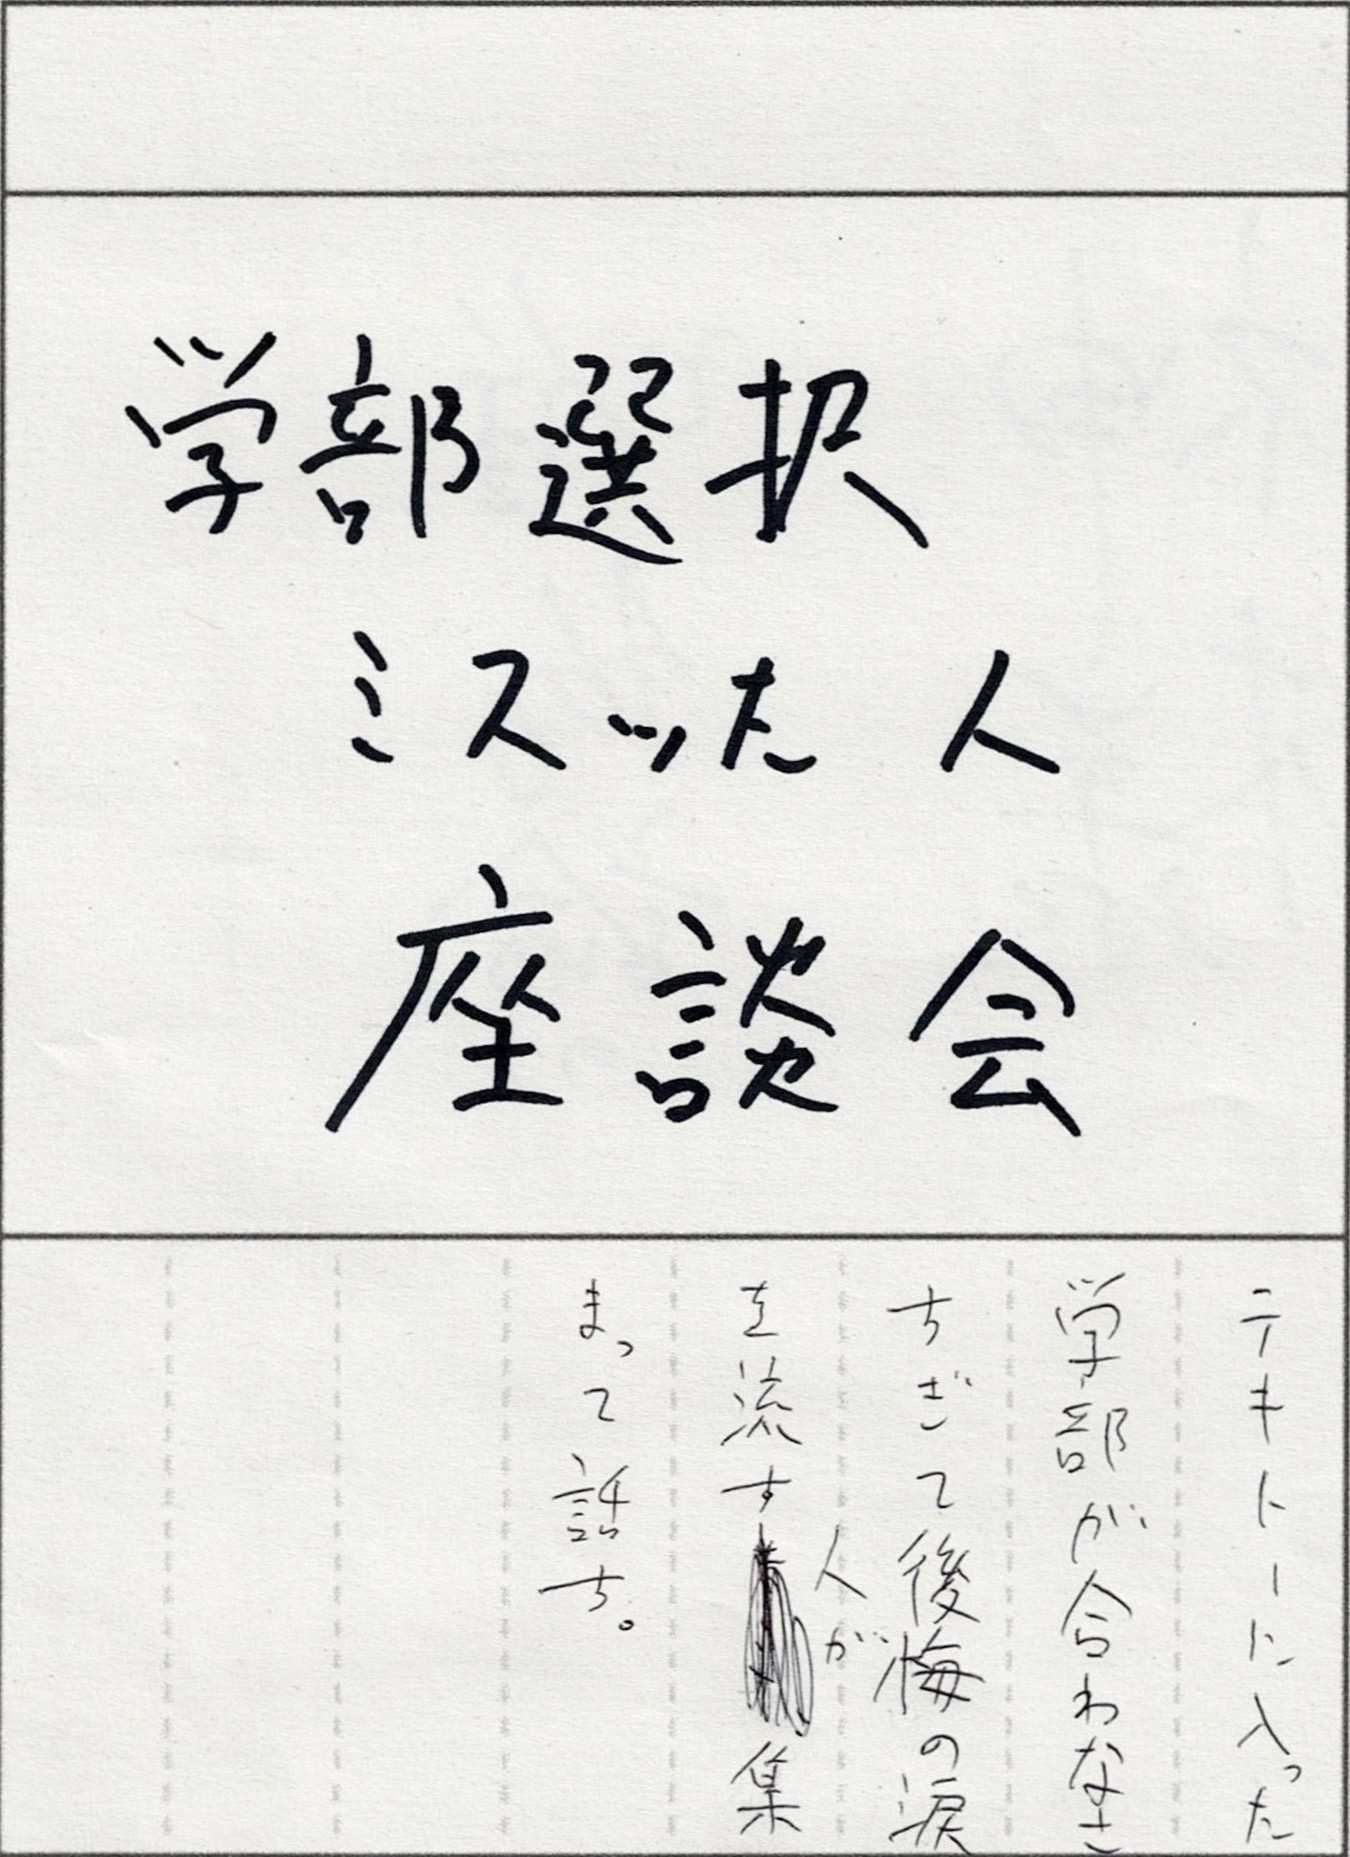 学部選択
ミスッた人
座談会
テキトーに入った
学部が合わなさ
すぎて後悔の涙
を流す人が集
まって話す。